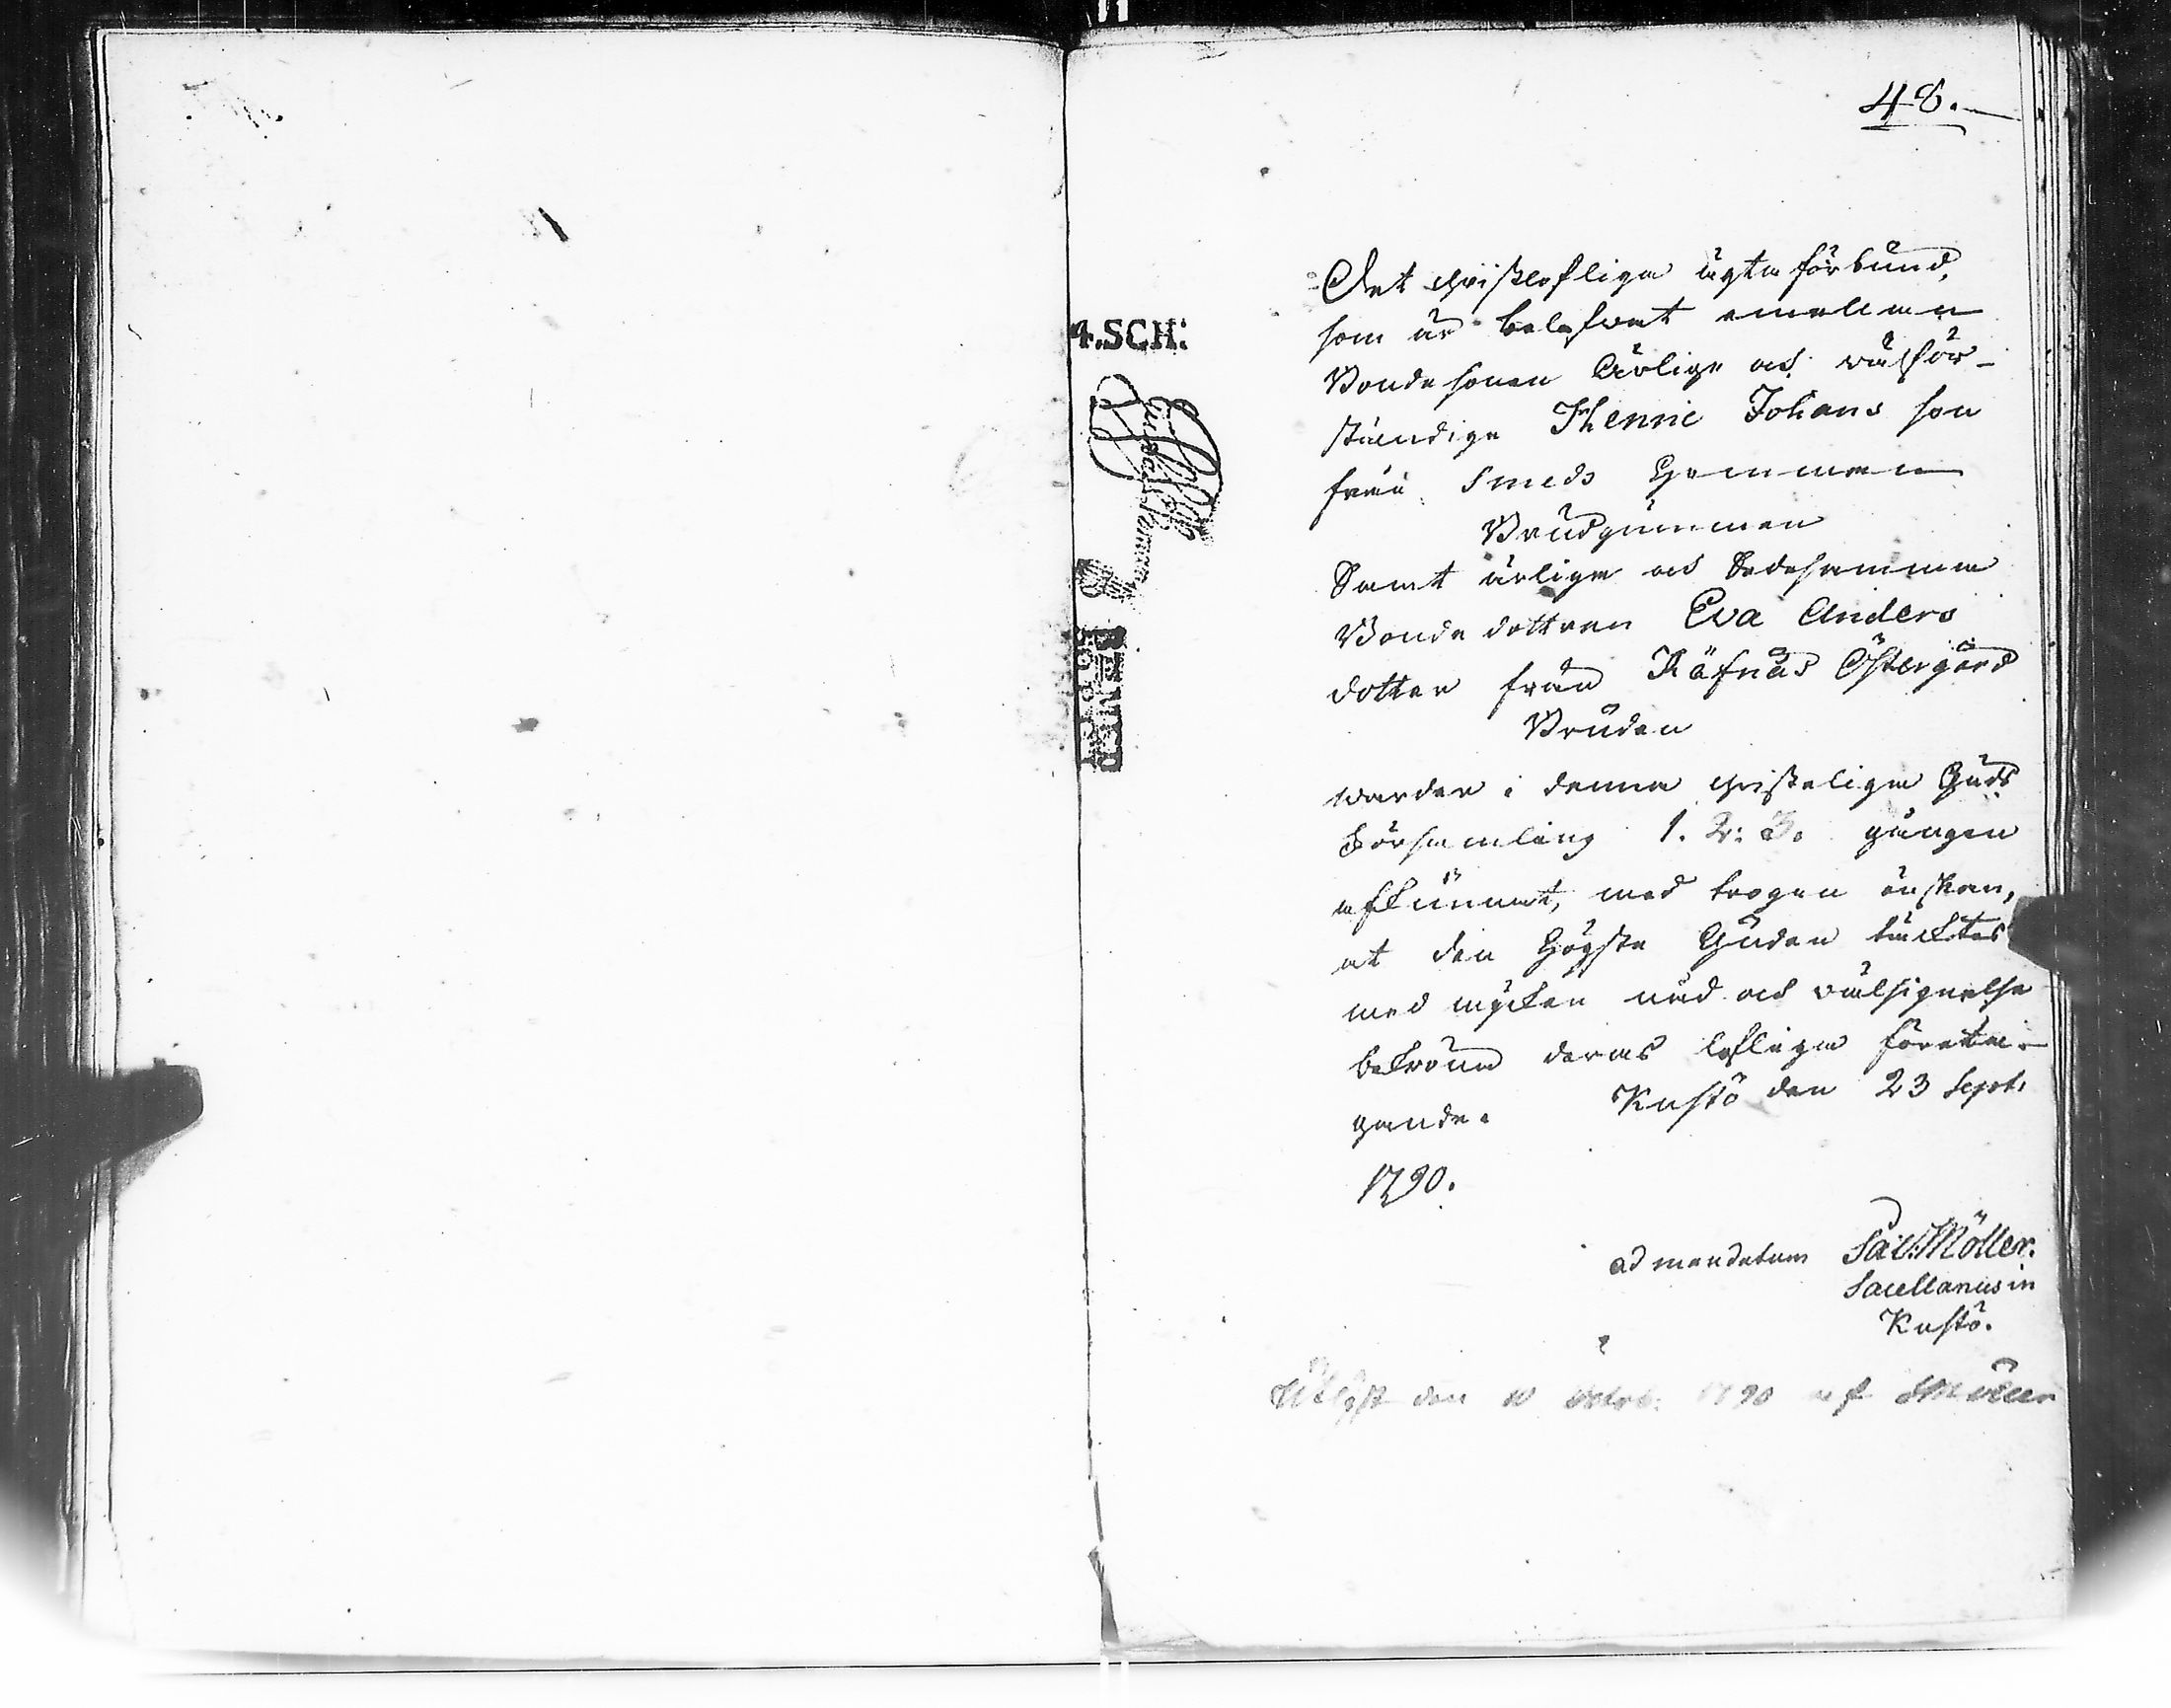 48.
4.SCH:
Det christeliga ägta förbund,
som är belefwat emellan
Bondesonen Ärlige och wälför-
ståndige Thenne Johans son
från Smeds Hemman
Brudgummen
Samt ärliga och Sedesamma
Bonde dottren Eva Anders
dotter från Räfnäs Östergård
Bruden
warder i denna christeliga Guds
Församling 1. 2: 3. gången
afkunnat, med trogen önskan,
at den högste Guden täcktes
med mycken nåd och wälsignelse
bekröna deras lofliga företa-
gande. Kustö den 23 Sept.
1790.
ad mandatum Sal. Möller.
Sacellanus in
Kustö.
Utlyst den 10 Octob. 1790 af SMöller